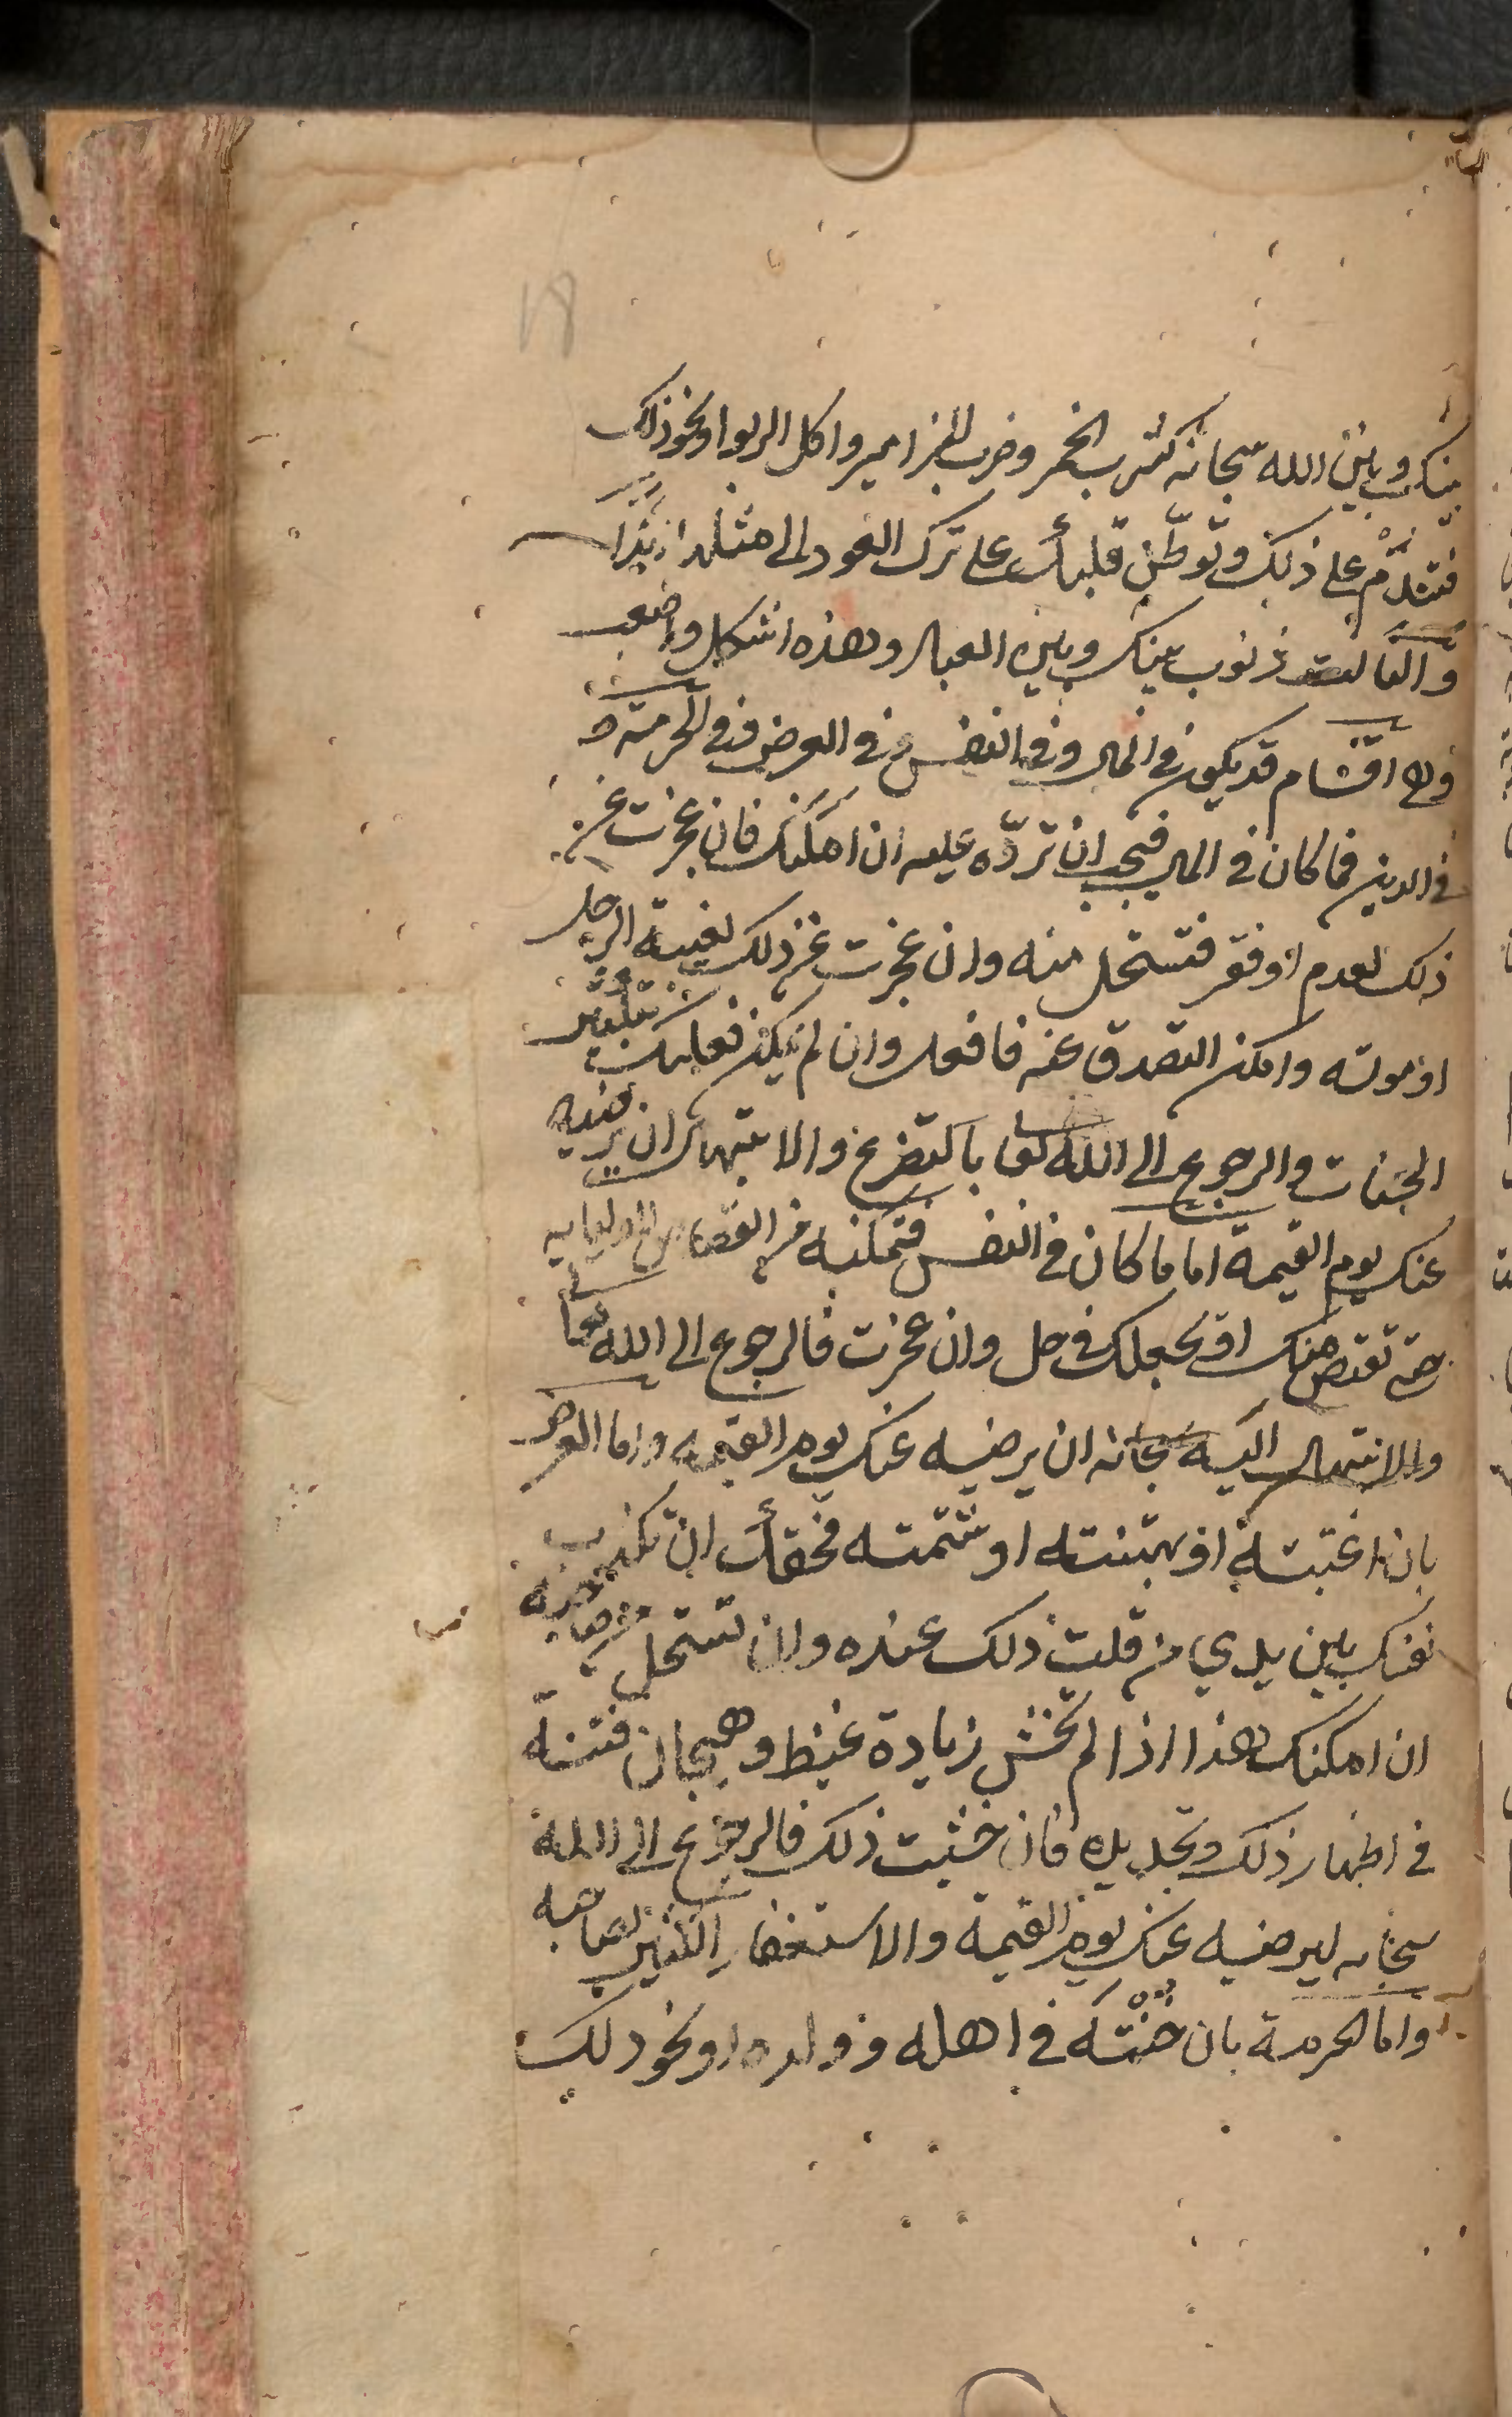 بينك وبين الله سبحانه كشرب الخمر وضرب المزامير واكل الربوا ونحو ذلك
فتندم على ذلك وتوطن قلبك على ترك العود الى مثلها ابدا
والثالث ذنوب بينك وبين العباد وهذه اشكل واصعب
وهي اقسام قد يكون في المال وفي النفس وفي العرض وفي الحرمة و
في الدين فما كان في المال فيجب ان تردّه عليه ان امكنك فان عجزت عن
ذلك لعدم او فقر فتستحل منه وان عجزت عن ذلك لغيبة الرجل
او موته وامكن التصدق عنه فافعل وان لم يكن فعليك بتكثير
الحسنات والرجوع الى الله تعا بالتضرع والابتهال ان يرضيه
عنك يوم القيمة اما ما كان في النفس فتمكنه من القصاص او اوليايه
حتى تقتص منك او يجعلك في حل وان عجزت فالرجوع الى الله تعا
والابتهال اليه سبحانه ان يرضيه عنك يوم القيمة واما العرض
بان اغتبته او بهتنته او شتمته فحقك ان تكذب
نفسك بين يدي من قلت ذلك عنده وان تستحل من صاحبه
ان امكنك هذا اذا لم تخش زيادة غيظ وهيجان فتنة
في اظهار ذلك وتجديده فان خشيت ذلك فالرجوع الى الله
سبحانه ليرضيه عنك يوم القيمة والاستغفار الكثير لصاحبه
واما الحرمة بان خُنْتَه في اهله و ولده او نحو ذلك